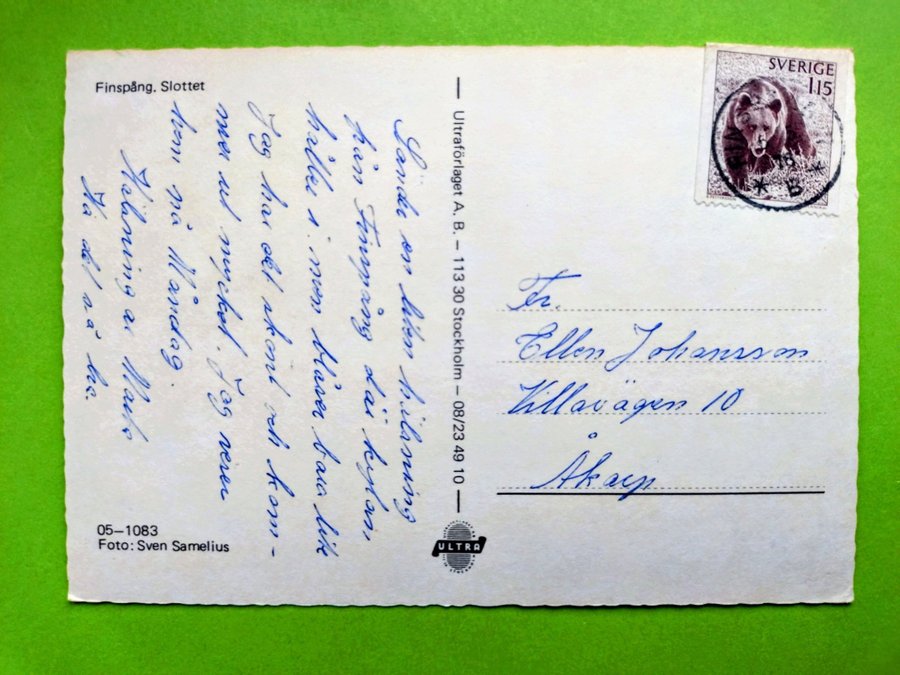 Finspång, Slottet
Sänder en liten hälsning
från Finspång där kylan
håller i, men blåser bara lite
Jag har det skönt och kom-
mer ut mycket. Jag reser
hem på Måndag.
Hälsning av
Ha det så bra.
05–1083
Foto: Sven Samelius
Ultraförlaget A. B. – 113 30 Stockholm – 08/23 49 10
ULTRA
SVERIGE
115
B
Fr.
Ellen Johansson
Villavägen 10
Åkarp